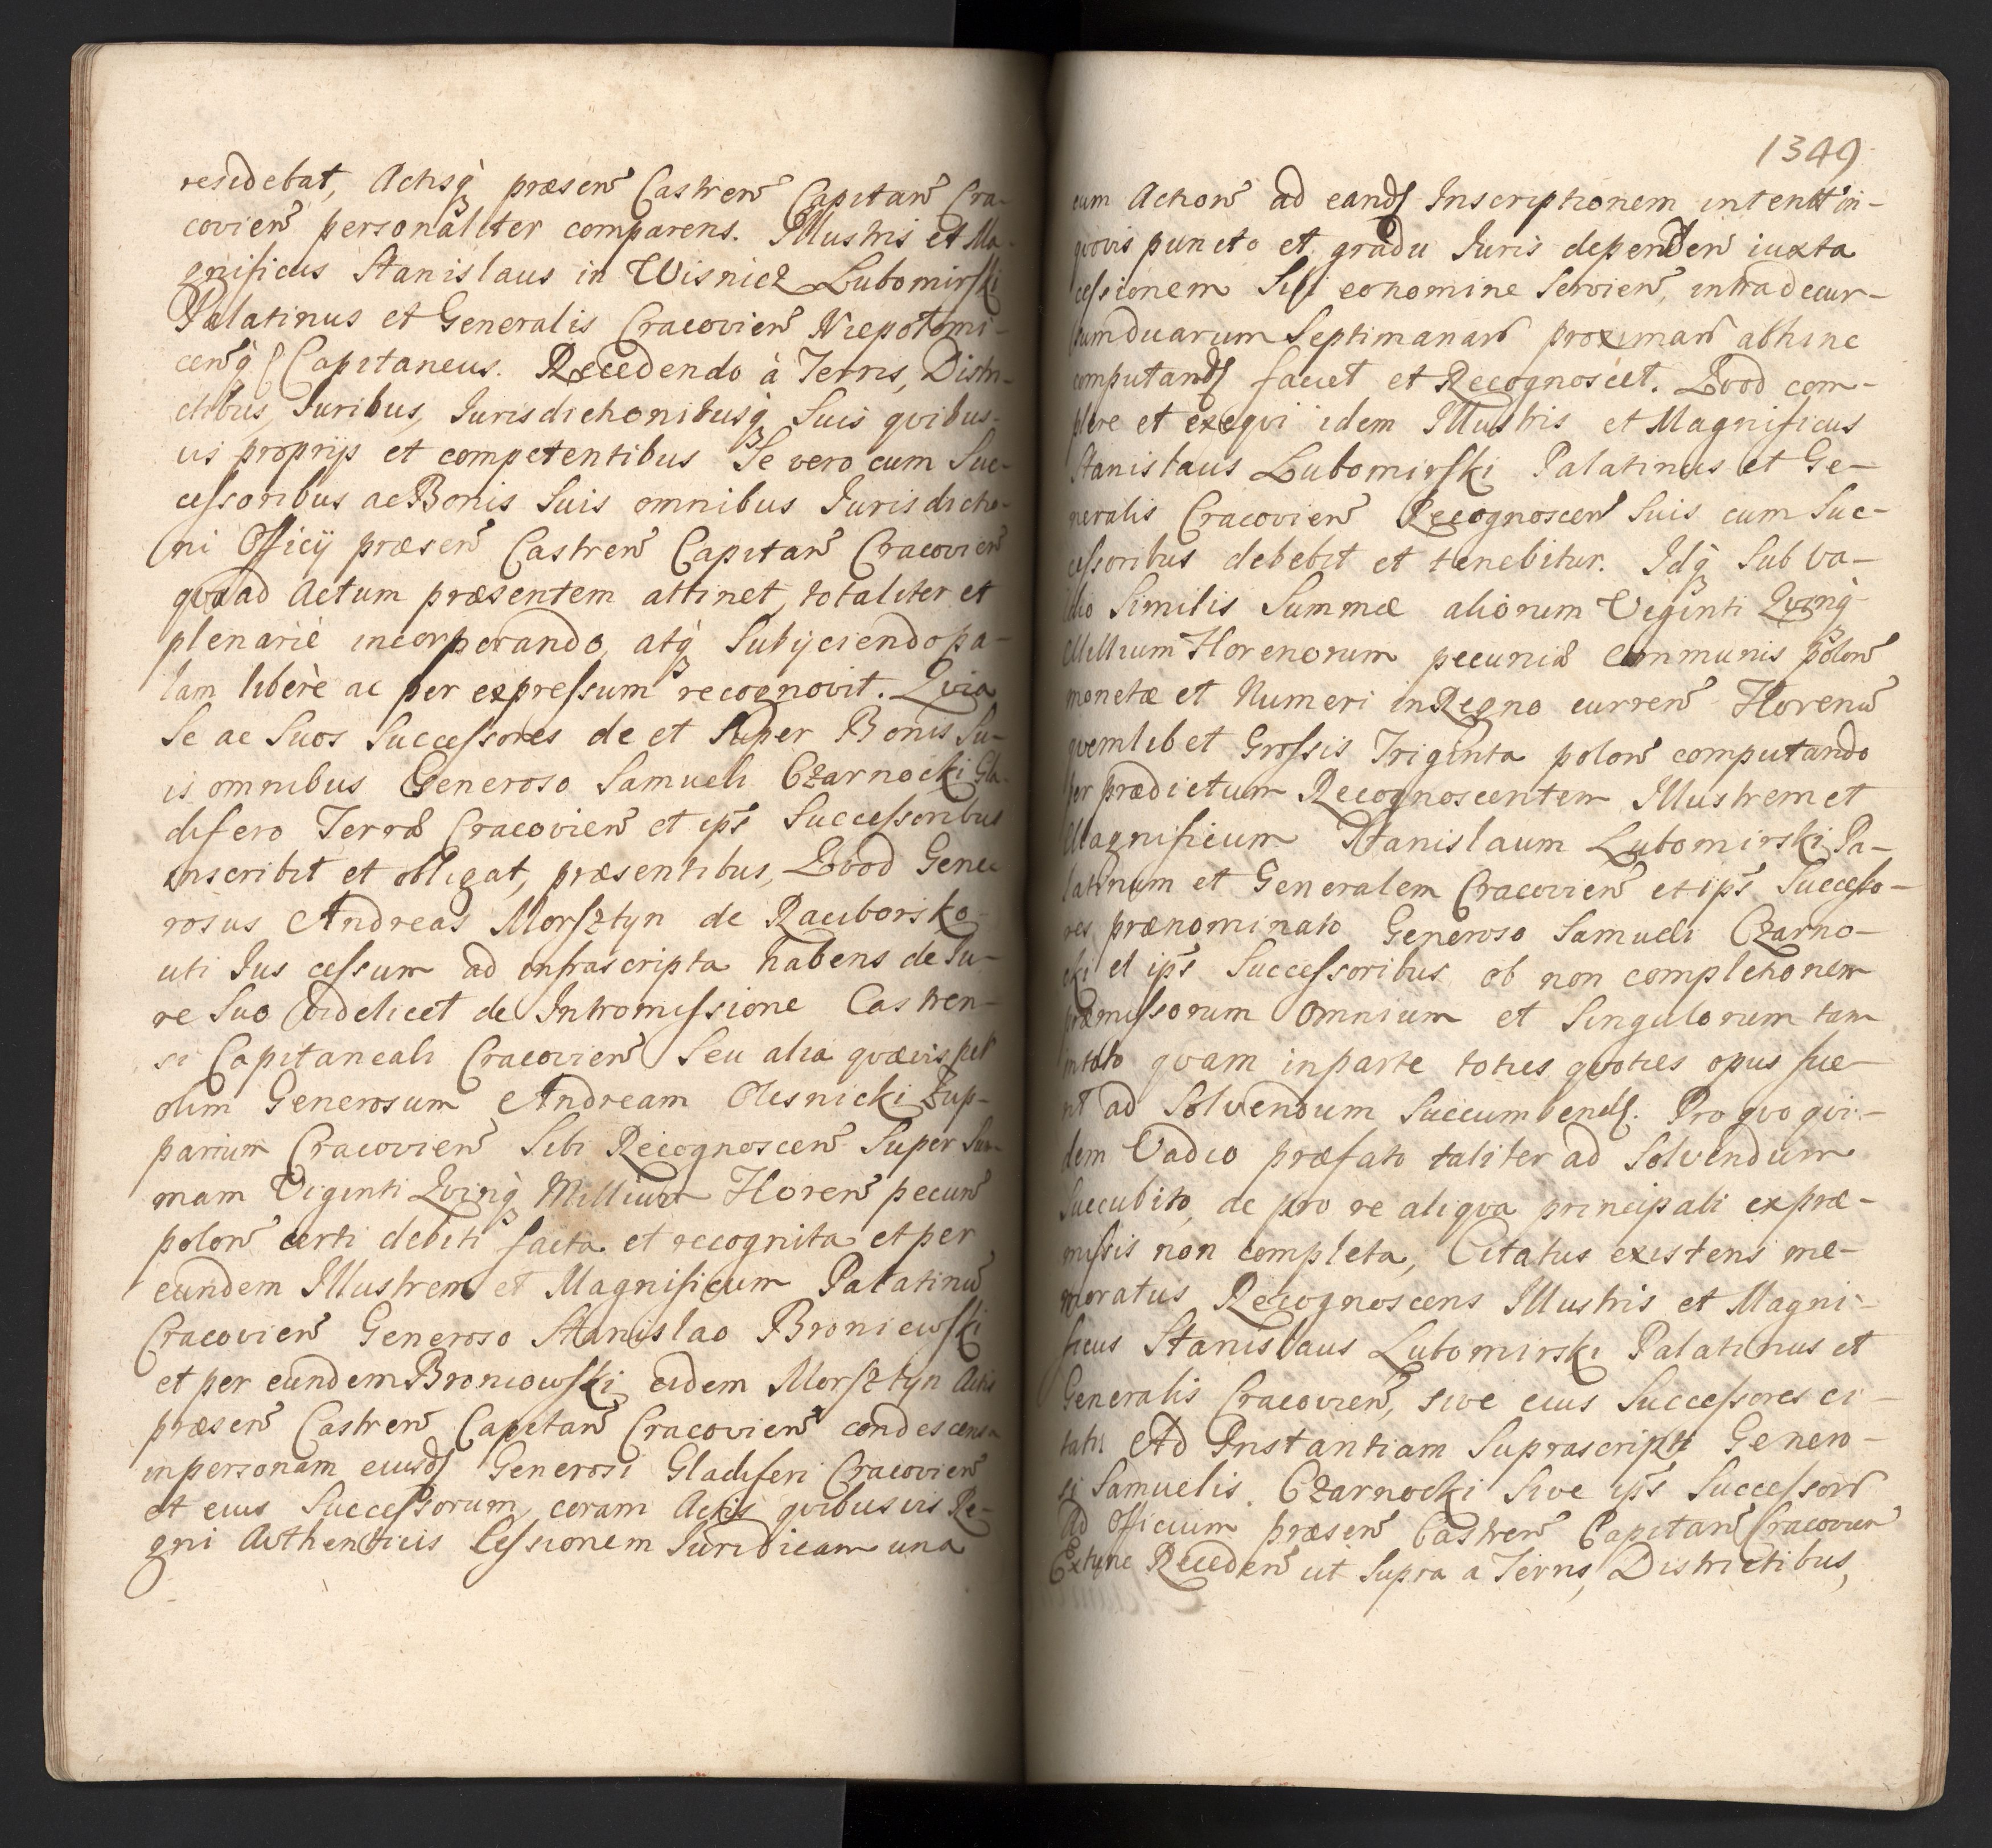 residebat, Actisq̀ præsen͠ Castren͠ Capitan͠ Cra-
covien͠ personaliter comparens. Illustris et Ma-
gnificus Stanislaus in Wisnicz Lubomirski
Palatinus et Generalis Cracovien͠ Niepotomi-
cen͠q̀ Capitaneus. Recedendo à Terris, Distri-
ctibus, Iuribus, Iurisdictionibusq̀ Suis quibus-
vis proprijs et competentibus Se vero cum Suc-
cessoribus ac Bonis Suis omnibus Iurisdictio-
ni Officij præsen͠ Castren͠ Capitan͠ Cracovien͠
quoad Actum præsentem attinet, totaliter et
plenariè incorporando, atq̀ Subijciendo pa-
lam liberè ac per expressum recognovit. Quia
Se ac Suos Successores de et Super Bonis Su-
is omnibus Generoso Samueli Czarnocki Gla-
difero Terræ Cracovien͠ et ip̃s Successoribus
inscribit et obligat, præsentibus, Quod Gene-
rosus Andreas Morsztyn de Raciborsko
uti Ius cessum ad infrascripta habens de Iu-
re Suo videlicet de Intromissione Castren-
si Capitaneali Cracovien͠ Seu alia quævis per
olim Generosum Andream Olesnicki Zup-
parium Cracovien͠ Sibi Recognoscen͠ Super Sum-
mam Viginti Quinq̀ Millium Floren͠ pecun͠
polon͠ certi debiti facta et recognita et per
eundem Illustrem et Magnificum Palatinu͠
Cracovien͠ Generoso Stanislao Broniewski
et per eundem Broniowski eidem Morsztyn Actis
præsen͠ Castren͠ Capitan͠ Cracovien͠ condescensa
in personam eiusd. Generosi Gladiferi Cracovien͠
et eius Successorum, coram Actis quibusvis Re-
gni Authenticis Cessionem Iuridicam una
1349
cum Action͠ ad eand. Inscriptionem intent͠ in-
quovis puncto et gradu Iuris dependen͠ iuxta
cessionem Sibi eo nomine Servien͠, intra decur-
sum duarum Septimanar͠ proximar͠ abhinc
computand. faciet et Recognoscet. Quod com-
plere et exequi idem Illustris et Magnificus
Stanislaus Lubomirski Palatinus et Ge-
neralis Cracovien͠ Recognoscen͠ Suis cum Suc-
cessoribus debebit et tenebitur. Idq̀ Sub va-
dio Similis Summæ aliorum Viginti Quinq̀
Millium Florenorum pecuniæ communis polon͠
monetæ et Numeri in Regno curren͠ Florenu͠
quemlibet Grossis Triginta polon͠ computando
per prædictum Recognoscentem Illustrem et
Magnificum Stanislaum Lubomirski Pa-
latinum et Generalem Cracovien͠ et ip̃s Successo-
res prænominato Generoso Samueli Czarno-
cki et ip̃s Successoribus ob non completionem
præmissorum omnium et Singulorum tam
in toto quam in parte toties quoties opus fue-
rit ad Solvendum Succumbend. Pro quo qui-
dem Vadio præfato taliter ad Solvendum
Succubito, ac pro re aliqua principali ex præ-
missis non completa, Citatus existens me-
moratus Recognoscens Illustris et Magni-
ficus Stanislaus Lubomirski Palatinus et
Generalis Cracovien͠, sive eius Successores ci-
tati Ad Instantiam Suprascripti Genero-
si Samuelis Czarnocki Sive ip̃s Successor͠
Ad Officium præsen͠ Castren͠ Capitan͠ Cracovien͠
Extunc Receden͠ ut Supra a Terris, Districtibus,